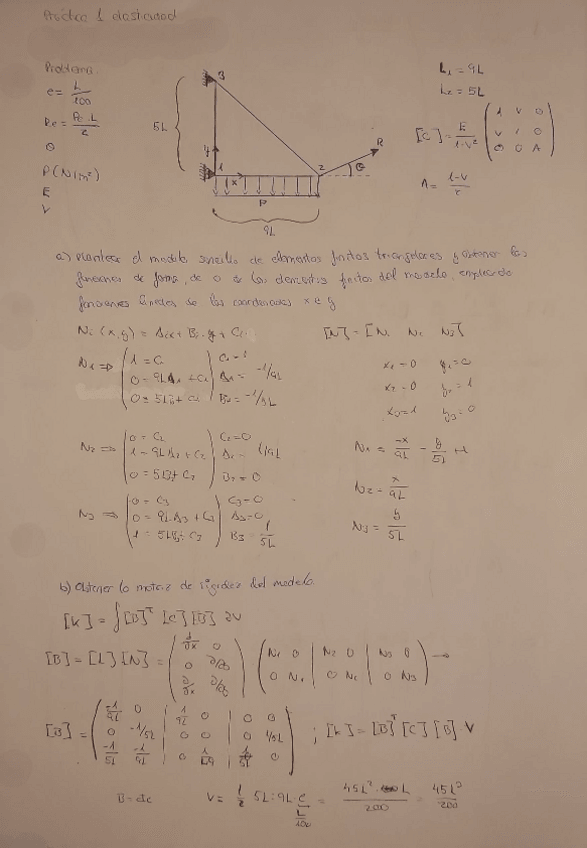 Práctica 1 elasticidad
Problema
e = L/100
Re = Pe·L/2
θ
P (N/m²)
E
V
5L
3
y
1
x
2
R
θ
P
9L
L₁ = 9L
L₂ = 5L
[C] = E/(1-V²) (1 V 0 / V 1 0 / 0 0 A)
A = (1-V)/2
a) Plantear el modelo sencillo de elementos finitos triangulares y obtener las
funciones de forma, de a los del modelo, empleando
funciones lineales de las coordenadas x e y
Ni (x,y) = Aix + Bi·y + Ci
[N] = [N₁ N₂ N₃]
N₁ ⇒ (1 = C₁ / 0 = 9LA₁ + C₁ / 0 = 5LB₁ + C₁) C₁ = 1 A₁ = -1/9L B₁ = -1/5L
x₁ = 0 y₁ = 0
x₂ = 0 y₂ = 1
x₃ = 1 y₃ = 0
N₂ ⇒ (0 = C₂ / 1 = 9LA₂ + C₂ / 0 = 5LB₂ + C₂) C₂ = 0 A₂ = 1/9L B₂ = 0
N₁ = -x/9L - y/5L + 1
N₂ = x/9L
N₃ ⇒ (0 = C₃ / 0 = 9L·A₃ + C₃ / 1 = 5LB₃ + C₃) C₃ = 0 A₃ = 0 B₃ = 1/5L
N₃ = y/5L
b) Obtener la matriz de rigidez del modelo
[K] = ∫[B]ᵀ [C] [B] ∂V
[B] = [L] [N] = (∂/∂x 0 / 0 ∂/∂y / ∂/∂x ∂/∂y) (N₁ 0 | N₂ 0 | N₃ 0 / 0 N₁ | 0 N₂ | 0 N₃) →
[B] = (-1/9L 0 | 1/9L 0 | 0 0 / 0 -1/5L | 0 0 | 0 1/5L / -1/5L -1/9L | 0 1/L9 | 1/5L 0) ; [K] = [B]ᵀ [C] [B] V
B = cte V = 1/2 5L · 9L e = 45L² L/200 = 45L³/200
L/100